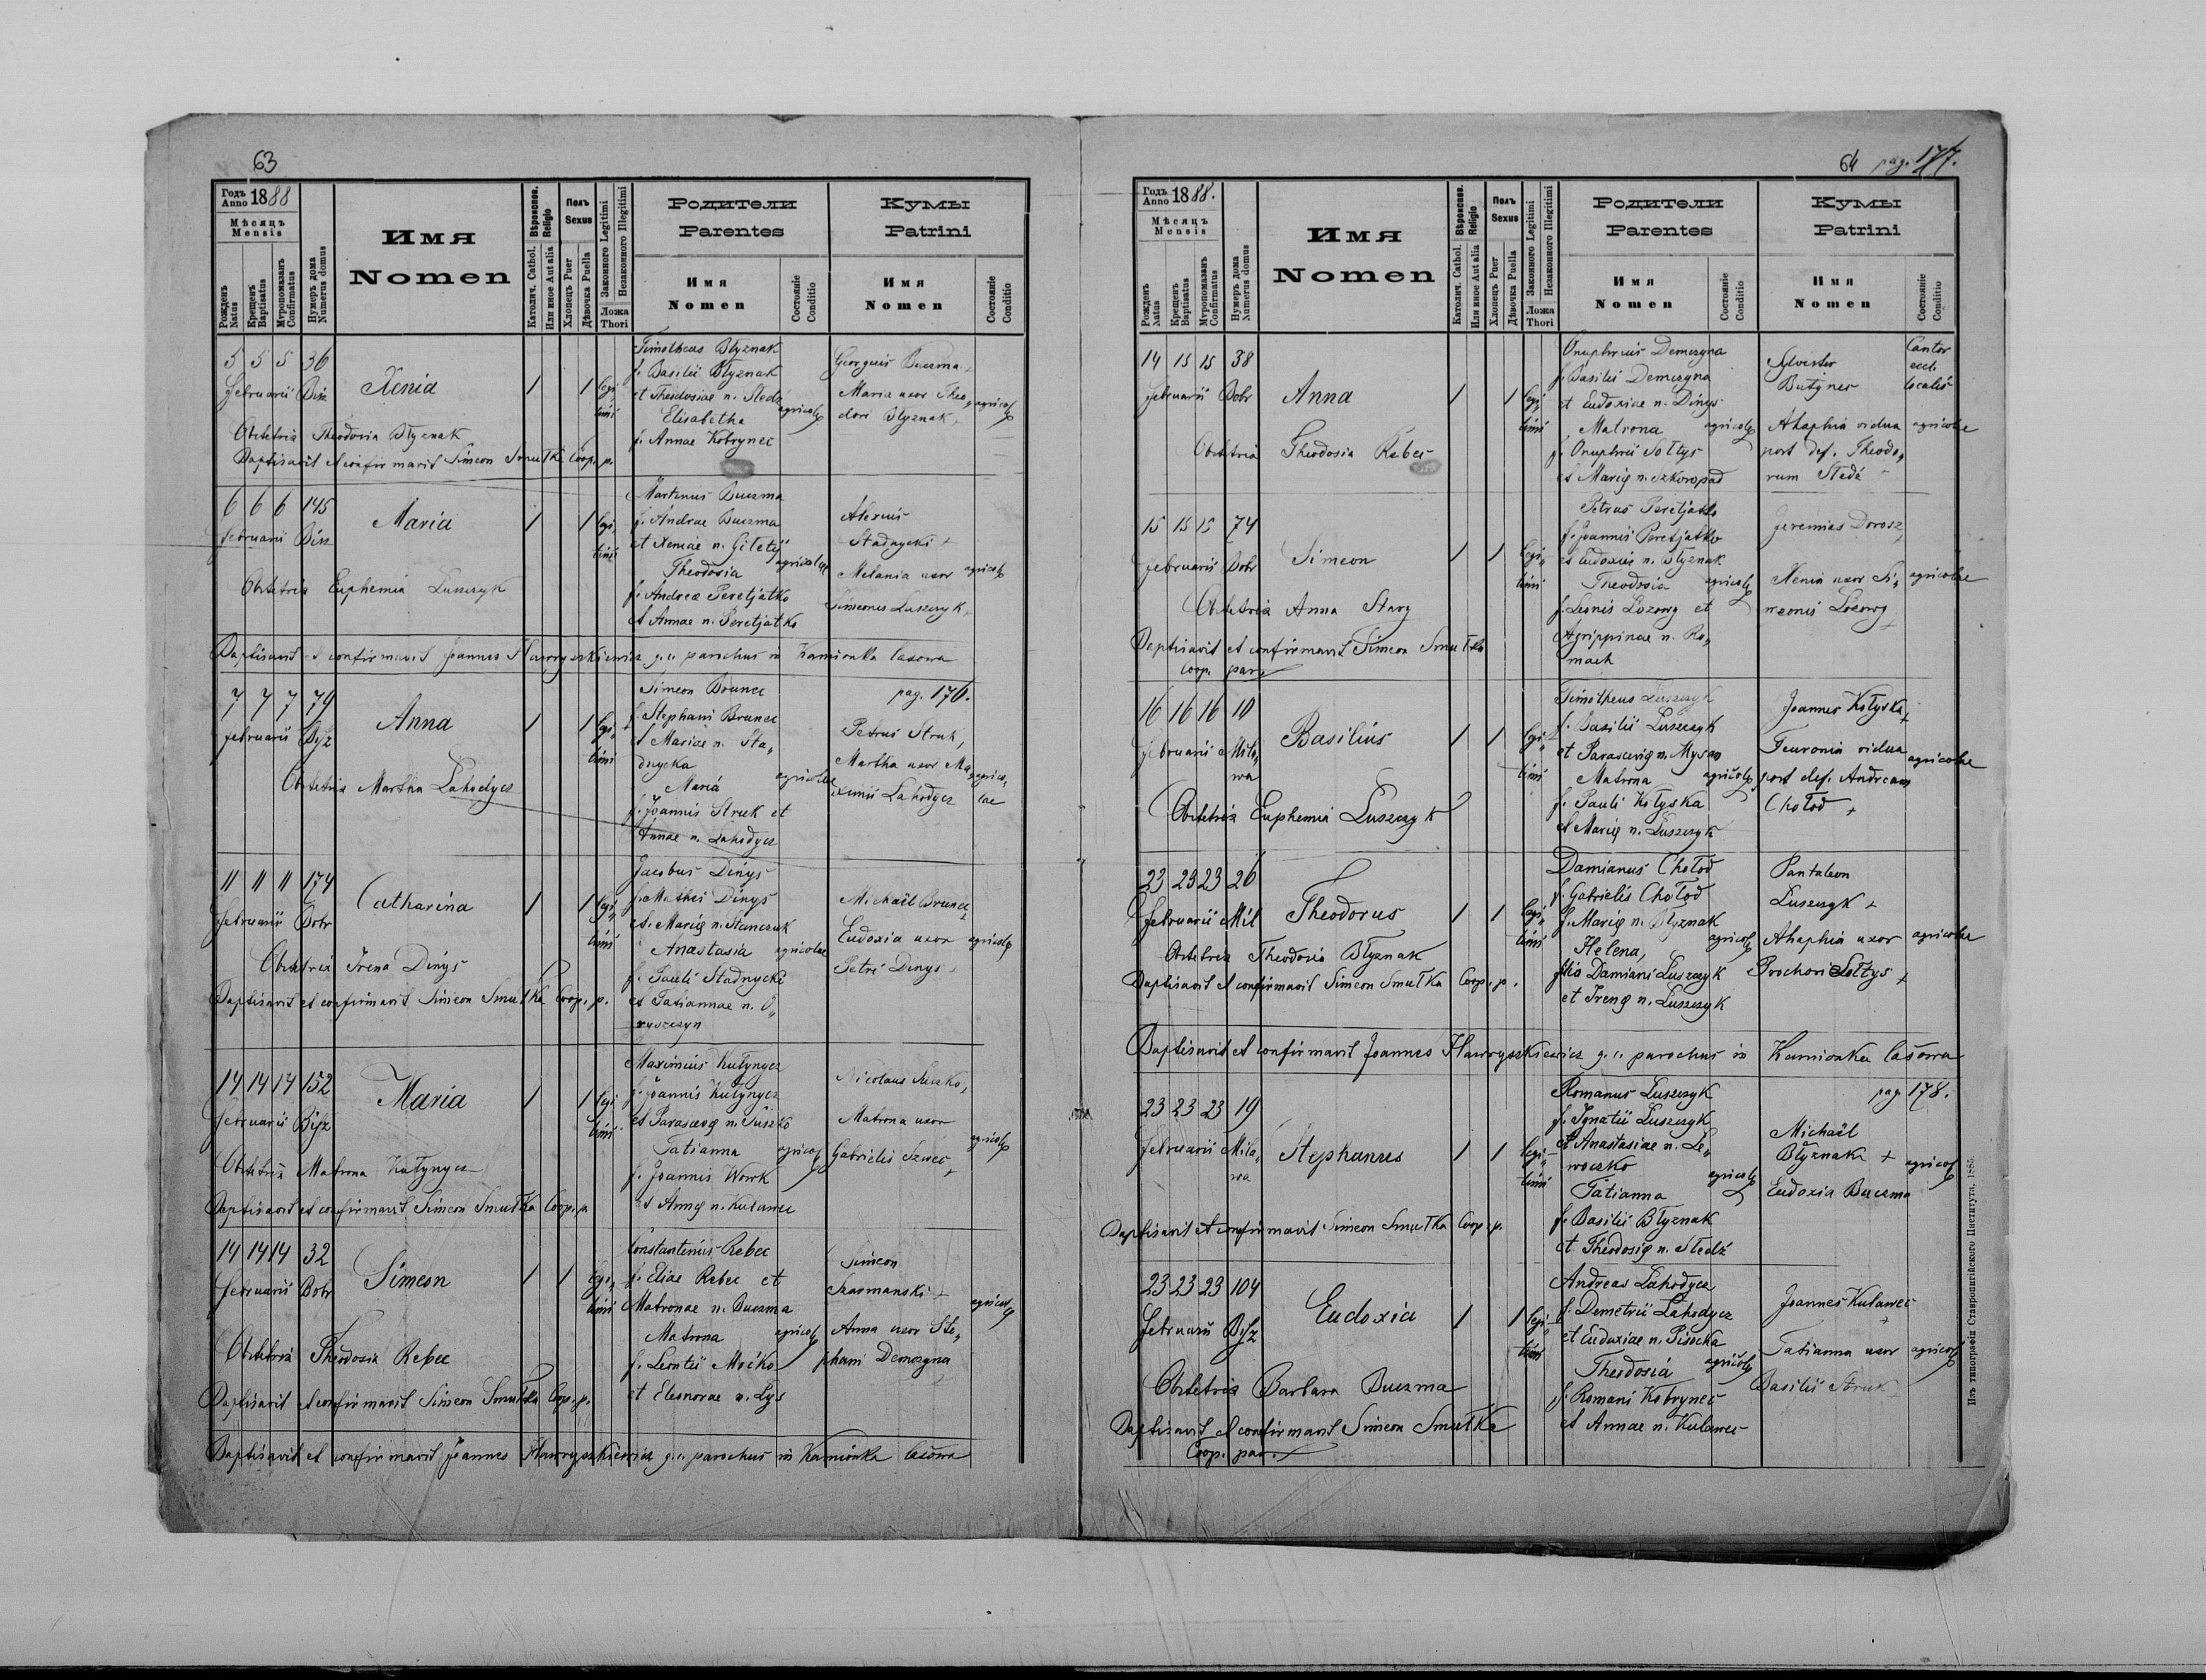 63
Годъ Anno 1888
Мѣсяцъ Mensis
Рожденъ Natus
Крещенъ Baptisatus
Мѵропомазанъ Confirmatus
Нумеръ дома Numerus domus
Имя Nomen
Вѣроиспов. Religio
Католич. Cathol.
Или иное Aut alia
Полъ Sexus
Хлопецъ Puer
Дѣвочка Puella
Законного Legitimi
Незаконного Illegitimi
Ложа Thori
Родители Parentes
Имя Nomen
Состояніе Conditio
Кумы Patrini
Имя Nomen
Состояніе Conditio
5 5 5 36
Februarii
Xenia
1 1 legi„ timi
Timotheus Błyznak
f. Basilii Błyznak
et Theodosiae n. Sledź
Elisabetha
f. Annae Kobrynec
Georgius Buczma
Maria uxor Theo„
dori Błyznak
Obstetrix Theodosia Błyznak
Baptisavit et confirmavit Simeon Smułka Coop. p.
6 6 6 145
Februarii
Maria
1 1 legi„ timi
Martinus Buczma
f. Andreae Buczma
et Xeniae n. Giletij
Theodosia
agricolae
f. Andreae Peretjatko
et Annae n. Peretjatko
Alexius
Stadnycki
Melania uxor
Simeonis Luszczyk
Obstetrix Euphemia Luszczyk
Baptisavit et confirmavit Joannes Hawryszkiewicz g. c. parochus in Kamionka lasowa
7 7 7 79
Februarii Byz
Anna
1 1 legi„ timi
Simeon Brunec
f. Stephani Brunec
et Mariae n. Sta„
dnycka
Maria
agricolae
f. Joannis Struk et
Annae n. Lahodycz
pag. 176.
Petrus Struk,
Martha uxor Ma„
ximii Lahodycz
agrico„ lae
Obstetrix Martha Lahodycz
11 11 11 174
Februarii Bobr
Catharina
1 1 legi„ timi
Jacobus Dinys
f. Mathei Dinys
et Mariae n. Stanczuk
Anastasia
agricolae
f. Pauli Stadnycki
et Tatiannae n. O„
ryszczyn
Michaël Brunec
Eudoxia uxor
Petri Dinys
Obstetrix Irena Dinys
Baptisavit et confirmavit Simeon Smułka Coop. p.
14 14 14 152
Februarii Byz
Maria
1 1 legi timi
Maximius Kułynycz
f. Joannis Kułynycz
et Parascevae n. Suszko
Tatianna
f. Joannis Wowk
et Annae n. Kulawec
Nicolaus Suszko,
Matrona uxor
Gabrielis Szwec
Obstetrix Matrona Kułynycz
Baptisavit et confirmavit Simeon Smułka Coop. p.
14 14 14 32
Februarii Bobr
Simeon
1 1 legi„ timi
Constantinus Rebec
f. Eliae Rebec et
Matronae n. Buczma
Matrona
f. Leontii Moćko
et Eleonorae n. Lys
Simeon
Szarmanski
Anna uxor Ste„
phani Demczyna
Obstetrix Theodosia Rebec
Baptisavit et confirmavit Simeon Smułka Coop. p.
Baptisavit et confirmavit Joannes Hawryszkiewicz g. c. parochus in Kamionka lasowa
64 pag. 177.
Годъ Anno 1888.
Мѣсяцъ Mensis
Рожденъ Natus
Крещенъ Baptisatus
Мѵропомазанъ Confirmatus
Нумеръ дома Numerus domus
Имя Nomen
Вѣроиспов. Religio
Католич. Cathol.
Или иное Aut alia
Полъ Sexus
Хлопецъ Puer
Дѣвочка Puella
Законного Legitimi
Незаконного Illegitimi
Ложа Thori
Родители Parentes
Имя Nomen
Состояніе Conditio
Кумы Patrini
Имя Nomen
Состояніе Conditio
14 15 15 38
Februarii Bobr
Anna
1 1 legi„ timi
Onuphrius Demczyna
f. Basilii Demczyna
et Eudoxiae n. Dinys
Matrona
f. Onuphrii Sołtys
et Mariae n. Szkoropad
Sylvester
Butyner
Cantor eccl. localis
Ahaphia vidua
agricolae
post def. Theodo„
rum Sledź
Obstetrix Theodosia Rebec
15 15 15 74
Februarii Bobr
Simeon
1 1 legi„ timi
Petrus Peretjatko
f. Joannis Peretjatko
et Eudoxiae n. Błyznak
Theodosia
f. Leonis Lozowy et
Agrippinae n. Ro„
mach
Jeremias Dorosz,
Xenia uxor Si„
meonis Lozowy
agricolae
Obstetrix Anna Stary
Baptisavit et confirmavit Simeon Smułka
Coop. par.
16 16 16 10
Februarii Mila„ wa
Basilius
1 1 legi„ timi
Timotheus Luszczyk
f. Basilii Luszczyk
et Parascevae n. Mysan
Matrona
f. Pauli Kołyska
et Mariae n. Luszczyk
Joannes Kołyska
Feuronia vidua
post def. Andream
Chołod
agricolae
Obstetrix Euphemia Luszczyk
23 23 23 26
Februarii Mil
Theodorus
1 1 legi„ timi
Damianus Chołod
f. Gabrielis Chołod
f. Mariae n. Błyznak
Helena,
filia Damiani Luszczyk
et Irenae n. Luszczyk
Pantaleon
Luszczyk
Ahaphia uxor
Prochori Sołtys
agricolae
Obstetrix Theodosia Błyznak
Baptisavit et confirmavit Simeon Smułka Coop. p.
Baptisavit et confirmavit Joannes Hawryszkiewicz g. c. parochus in Kamionka lasowa
23 23 23 19
Februarii Mila„ wa
Stephanus
1 1 legi„ timi
Romanus Luszczyk
f. Ignatii Luszczyk
et Anastasiae n. Le„
woczko
Tatianna
f. Basilii Błyznak
et Theodosiae n. Sledź
pag 178.
Michaël
Błyznak
Eudoxia Buczma
Baptisavit et confirmavit Simeon Smułka Coop. p.
23 23 23 104
Februarii Byz
Eudoxia
1 1 legi„ timi
Andreas Lahodycz
f. Demetrii Lahodycz
et Eudoxiae n. Pisocka
Theodosia
f. Romani Kobrynec
et Annae n. Kulawec
Joannes Kulawec
Tatianna uxor
Basilii Struk
Obstetrix Barbara Buczma
Baptisavit et confirmavit Simeon Smułka
Coop. par.
Изъ типографіи Ставропигійского Института, 1885.